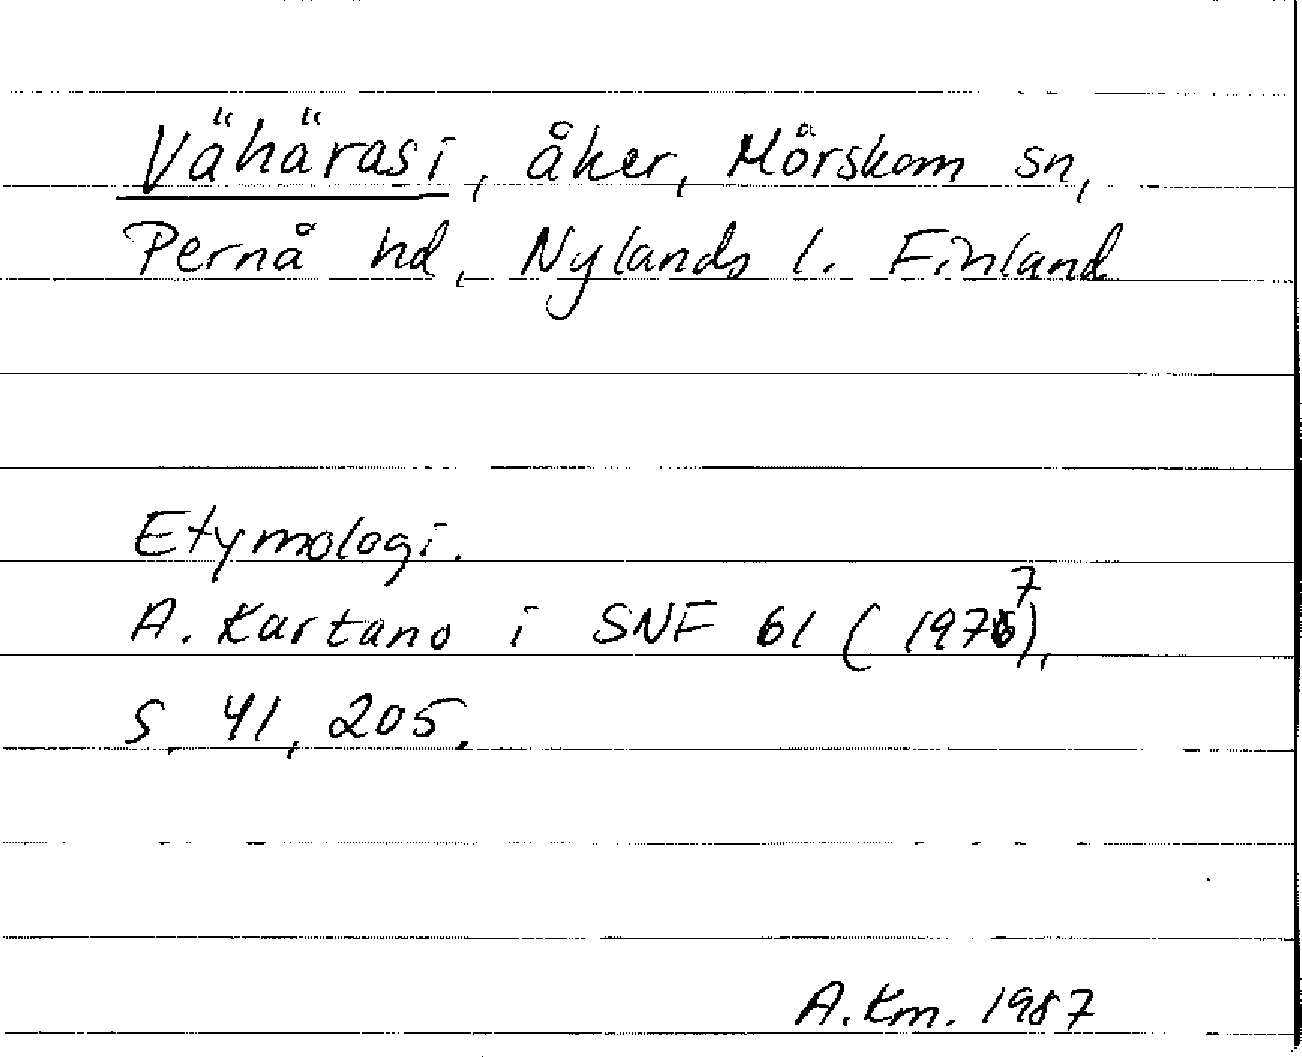 Vähärasi, åker, Mörskom sn,
Pernå hd, Nylands l. Finland
Etymologi.
A. Kartano i SNF 61 (1977),
s. 41, 205.
A. Km. 1987